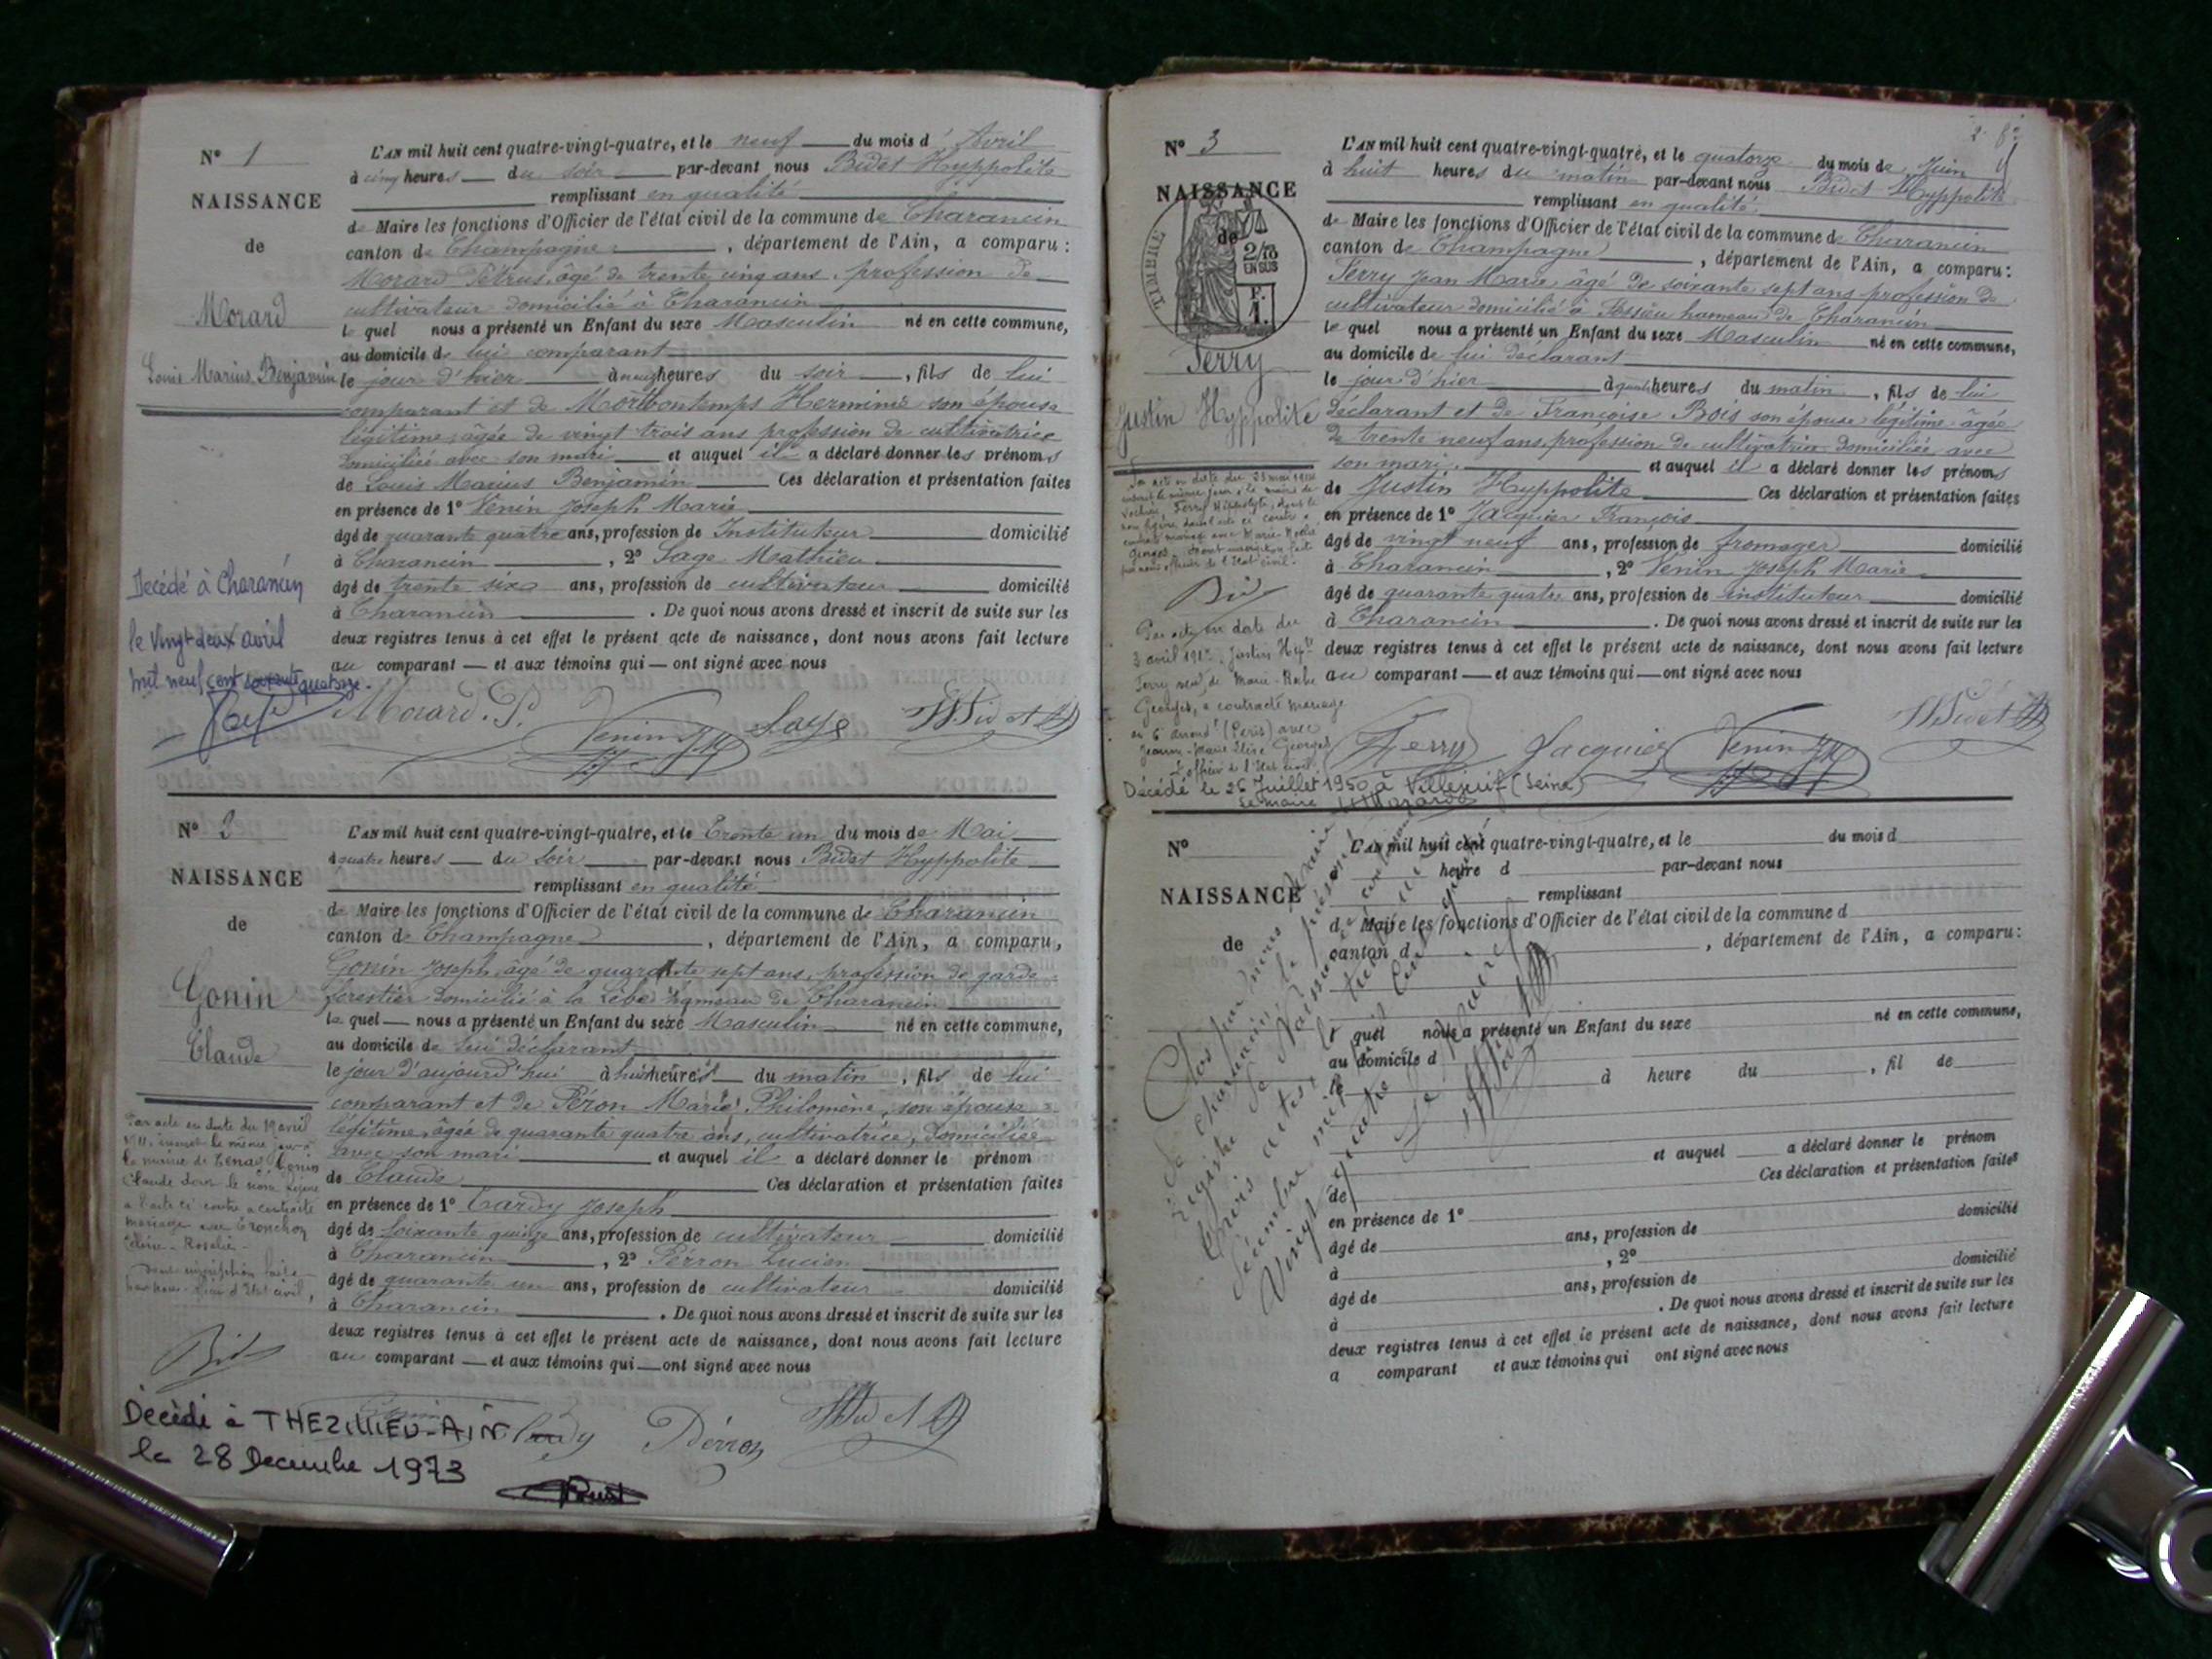 N° 1
NAISSANCE
de
Morard
Louis Marius Benjamin
L'AN mil huit cent quatre-vingt-quatre, et le neuf du mois d' Avril
à cinq heures du soir par-devant nous Bidet Hyppolite
remplissant en qualité
de Maire les fonctions d'Officier de l'état civil de la commune de Charancin
canton de Champagne, département de l'Ain, a comparu :
Morard Pétrus, âgé de trente cinq ans, profession de
cultivateur domicilié à Charancin
le quel nous a présenté un Enfant du sexe Masculin né en cette commune,
au domicile de lui comparant
le jour d'hier à heures du soir, fils de lui
comparant et de Herminie son épouse
légitime, âgée de vingt trois ans profession de cultivatrice
domiciliée avec son mari et auquel il a déclaré donner les prénoms
de Louis Marius Benjamin Ces déclaration et présentation faites
en présence de 1° Venin Joseph Marie
âgé de quarante quatre ans, profession de Instituteur domicilié
à Charancin, 2° Sage Mathieu
âgé de trente six ans, profession de cultivateur domicilié
à Charancin. De quoi nous avons dressé et inscrit de suite sur les
deux registres tenus à cet effet le présent acte de naissance, dont nous avons fait lecture
au comparant et aux témoins qui ont signé avec nous
Décédé à Charancin
le Vingt deux avril
mil neuf cent soixante quatorze.
Morard. P. Venin JM Sage Bidet H
N° 2
NAISSANCE
de
Gonin
Claude
L'AN mil huit cent quatre-vingt-quatre, et le Trente un du mois de Mai
à quatre heures du soir par-devant nous Bidet Hyppolite
remplissant en qualité
de Maire les fonctions d'Officier de l'état civil de la commune de Charancin
canton de Champagne, département de l'Ain, a comparu,
Gonin Joseph, âgé de quarante sept ans, profession de garde
forestier domicilié à la Lèbe hameau de Charancin
le quel nous a présenté un Enfant du sexe Masculin né en cette commune,
au domicile de lui déclarant
le jour d'aujourd'hui à huit heures du matin, fils de lui
comparant et de Péron Marie Philomène, son épouse
légitime, âgée de quarante quatre ans, cultivatrice, domiciliée
avec son mari et auquel il a déclaré donner le prénom
de Claude Ces déclaration et présentation faites
en présence de 1° Tardy Joseph
âgé de soixante quinze ans, profession de cultivateur domicilié
à Charancin, 2° Perron Lucien
âgé de quarante un ans, profession de cultivateur domicilié
à Charancin. De quoi nous avons dressé et inscrit de suite sur les
deux registres tenus à cet effet le présent acte de naissance, dont nous avons fait lecture
au comparant et aux témoins qui ont signé avec nous
Par acte en date du 19 avril
Claude dont le nom figure
à l'acte ci contre a contracté
mariage avec Tronchon
dont inscription faite
par nous officier d'Etat civil,
Tardy Perron Bidet H
Décédé à THEZILLIEU-AIN
le 28 Decembre 1973
N° 3
NAISSANCE
de
TIMBRE
2/10
EN SUS
F.
1.
Ferry
Justin Hyppolite
L'AN mil huit cent quatre-vingt-quatre, et le quatorze du mois de Juin
à huit heures du matin par-devant nous Bidet Hyppolite
remplissant en qualité
de Maire les fonctions d'Officier de l'état civil de la commune de Charancin
canton de Champagne, département de l'Ain, a comparu :
Ferry Jean Marie, âgé de soixante sept ans profession de
cultivateur domicilié à hameau de Charancin
le quel nous a présenté un Enfant du sexe Masculin né en cette commune,
au domicile de lui déclarant
le jour d'hier à heures du matin, fils de lui
déclarant et de Françoise Bois son épouse légitime âgée
de trente neuf ans, profession de cultivatrice domiciliée avec
son mari, et auquel il a déclaré donner les prénoms
de Justin Hyppolite Ces déclaration et présentation faites
en présence de 1° Jacquier François
âgé de vingt neuf ans, profession de fromager domicilié
à Charancin, 2° Venin Joseph Marie
âgé de quarante quatre ans, profession de instituteur domicilié
à Charancin. De quoi nous avons dressé et inscrit de suite sur les
deux registres tenus à cet effet le présent acte de naissance, dont nous avons fait lecture
au comparant et aux témoins qui ont signé avec nous
Par acte en date du
3 avril Justin
Ferry veuf de Marie-
Georges, a contracté mariage
au 6 arrond (Paris) avec
Georges
L'officier de l'Etat civil
Décédé le 26 Juillet 1950 à Villejuif (Seine)
Le maire
Ferry Jacquier Venin JM Bidet H
N°
NAISSANCE
de
L'AN mil huit cent quatre-vingt-quatre, et le du mois d
heure d par-devant nous
remplissant
d Maire les fonctions d'Officier de l'état civil de la commune d
canton d, département de l'Ain, a comparu :
l quel nous a présenté un Enfant du sexe né en cette commune,
au domicile d
le à heure du, fil de
et auquel a déclaré donner le prénom
de Ces déclaration et présentation faites
en présence de 1°
âgé de ans, profession de domicilié
à, 2°
âgé de ans, profession de domicilié
à. De quoi nous avons dressé et inscrit de suite sur les
deux registres tenus à cet effet le présent acte de naissance, dont nous avons fait lecture
a comparant et aux témoins qui ont signé avec nous
Clos par nous Maire
de Charancin le présent
registre de Naissance
trois actes, le trente un
Décembre mil huit cent
Vingt quatre
Le Maire